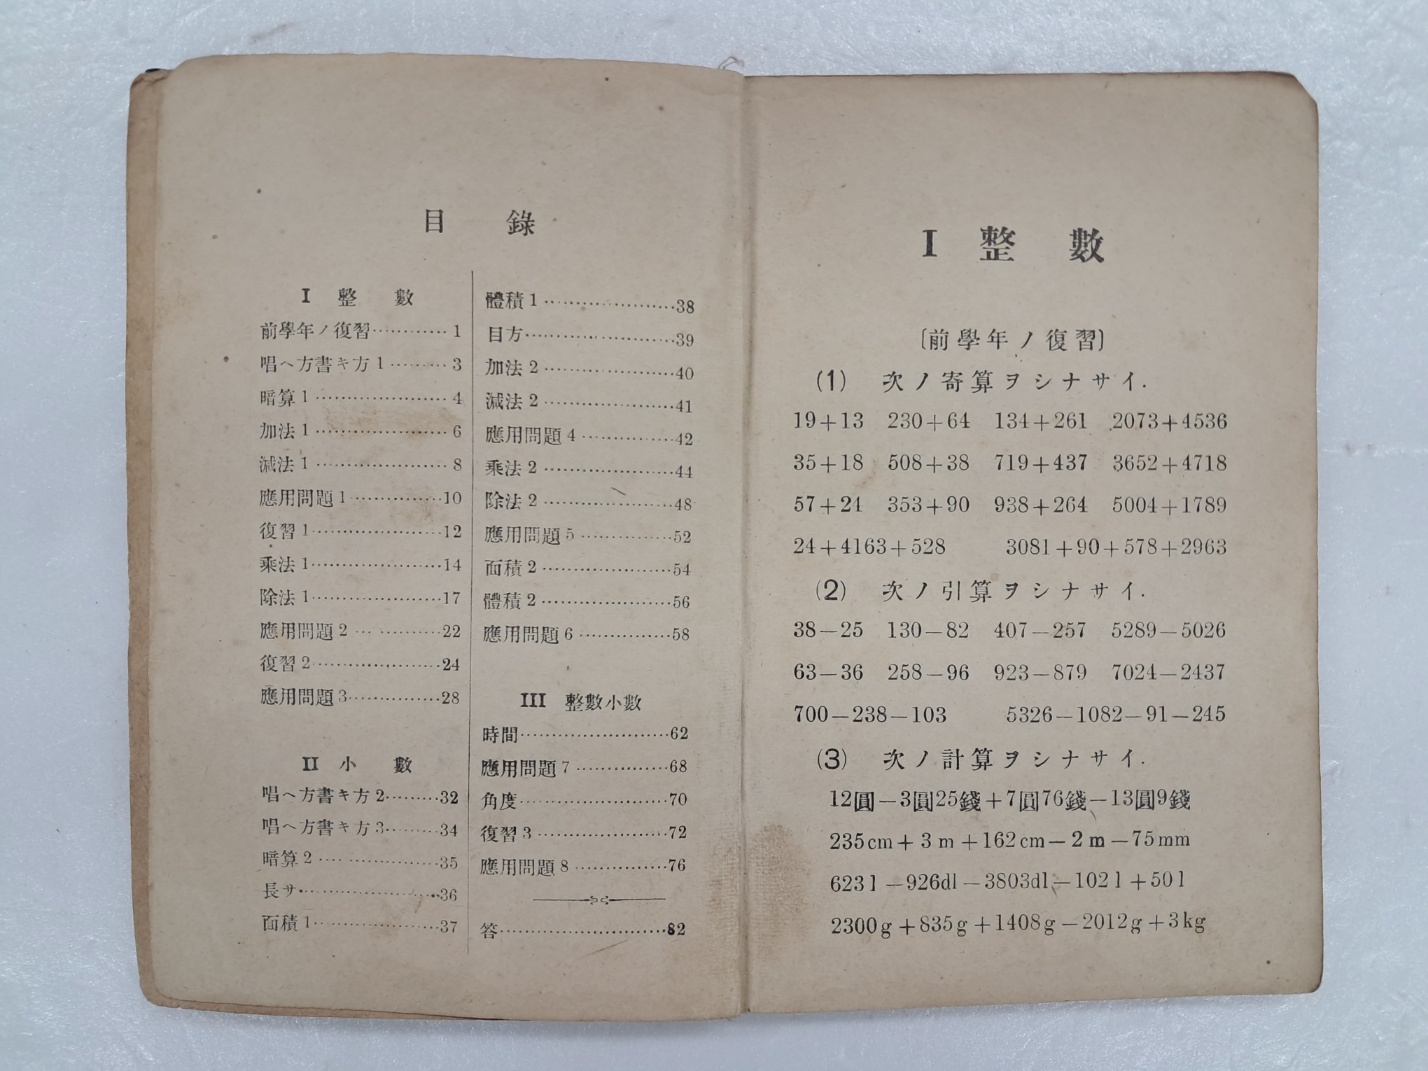 目 錄
I 整 數
前學年ノ復習…………1
唱ヘ方書キ方1………3
暗算1…………………4
加法1…………………6
減法1…………………8
應用問題1……………10
復習1…………………12
乘法1…………………14
除法1…………………17
應用問題2……………22
復習2…………………24
應用問題3……………28
II 小 數
唱ヘ方書キ方2………32
唱ヘ方書キ方3………34
暗算2…………………35
長サ……………………36
面積1…………………37
體積1…………………38
目方……………………39
加法2…………………40
減法2…………………41
應用問題4……………42
乘法2…………………44
除法2…………………48
應用問題5……………52
面積2…………………54
體積2…………………56
應用問題6……………58
III 整數小數
時間……………………62
應用問題7……………68
角度……………………70
復習3…………………72
應用問題8……………76
答………………………82
I 整 數
〔前學年ノ復習〕
(1) 次ノ寄算ヲシナサイ.
19+13 230+64 134+261 2073+4536
35+18 508+38 719+437 3652+4718
57+24 353+90 938+264 5004+1789
24+4163+528 3081+90+578+2963
(2) 次ノ引算ヲシナサイ.
38−25 130−82 407−257 5289−5026
63−36 258−96 923−879 7024−2437
700−238−103 5326−1082−91−245
(3) 次ノ計算ヲシナサイ.
12圓−3圓25錢+7圓76錢−13圓9錢
235cm+3m+162cm−2m−75mm
623l−926dl−3803dl−102l+50l
2300g+835g+1408g−2012g+3kg